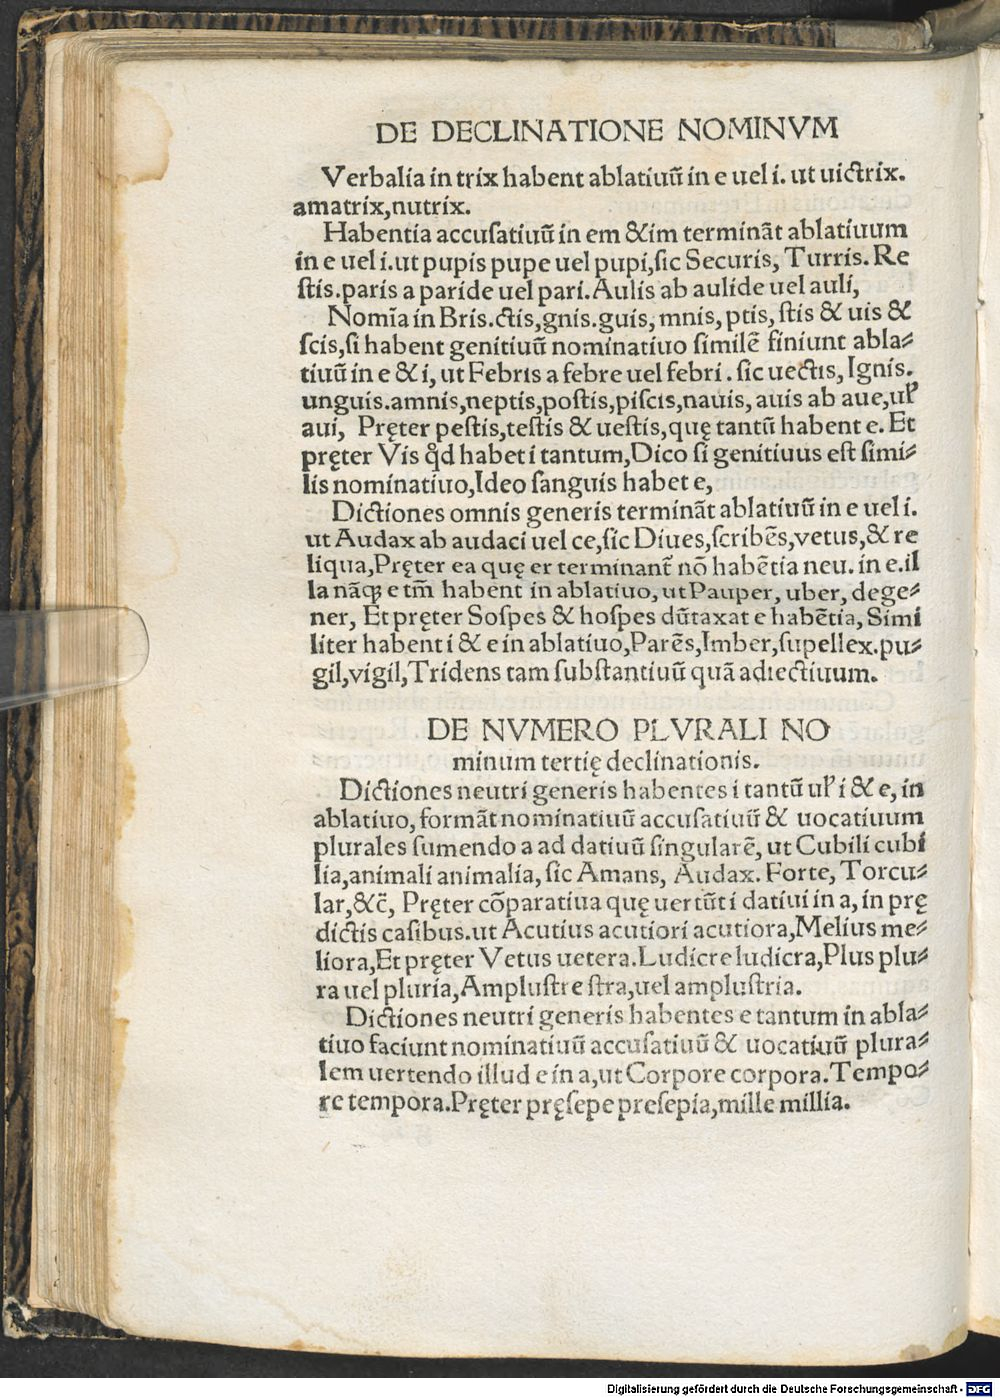 DE DECLINATIONE NOMINVM
Verbalia in trix habent ablatiuū in e uel i. ut uictrix.
amatrix,nutrix.
Habentia accuſatiuū in em &im terminãt ablatiuum
in e uel i.ut pupis pupe uel pupi,ſic Securis, Turris. Re
ſtis.paris a paride uel pari.Aulis ab aulide uel auli,
Nomĩa in Bris.ctis,gnis.guis, mnis, ptis, ſtis & uis &
ſcis,ſi habent genitiuū nominatiuo ſimilẽ finiunt abla⸗
tiuū in e & i, ut Febris a febre uel febri. ſic uectis, Ignis.
unguis.amnis,neptis,poſtis,piſcis,nauis, auis ab aue,uꝉ
aui, Pręter peſtis,teſtis & ueſtis,quę tantū habent e. Et
pręter Vis qđ habet i tantum,Dico ſi genitiuus eſt ſimi⸗
lis nominatiuo,Ideo ſanguis habet e,
Dictiones omnis generis terminãt ablatiuū in e uel i.
ut Audax ab audaci uel ce,ſic Diues,ſcribẽs,vetus,& re
liqua,Pręter ea quę er terminanť nõ habẽtia neu. in e.il
la nãqȝ e tm̃ habent in ablatiuo, ut Pauper, uber, dege⸗
ner, Et pręter Soſpes & hoſpes dūtaxat e habẽtia, Simi
liter habent i & e in ablatiuo,Parẽs,Imber,ſupellex.pu⸗
gil,vigil,Tridens tam ſubſtantiuū quã adiectiuum.
DE NVMERO PLVRALI NO
minum tertię declinationis.
Dictiones neutri generis habentes i tantū uꝉ i & e, in
ablatiuo, formãt nominatiuū accuſatiuū & uocatiuum
plurales ſumendo a ad datiuū ſingularẽ, ut Cubili cubi
lia,animali animalia, ſic Amans, Audax. Forte, Torcu⸗
lar,&c̃, Pręter cõparatiua quę uertūt i datiui in a, in prę
dictis caſibus.ut Acutius acutiori acutiora,Melius me⸗
liora,Et pręter Vetus uetera.Ludicre ludicra,Plus plu⸗
ra uel pluria,Ampluſtre ſtra,uel ampluſtria.
Dictiones neutri generis habentes e tantum in abla⸗
tiuo faciunt nominatiuū accuſatiuū & uocatiuū plura⸗
lem uertendo illud e in a,ut Corpore corpora.Tempo⸗
re tempora.Pręter pręſepe preſepia,mille millia.
Digitalisierung gefördert durch die Deutsche Forschungsgemeinschaft - DFG